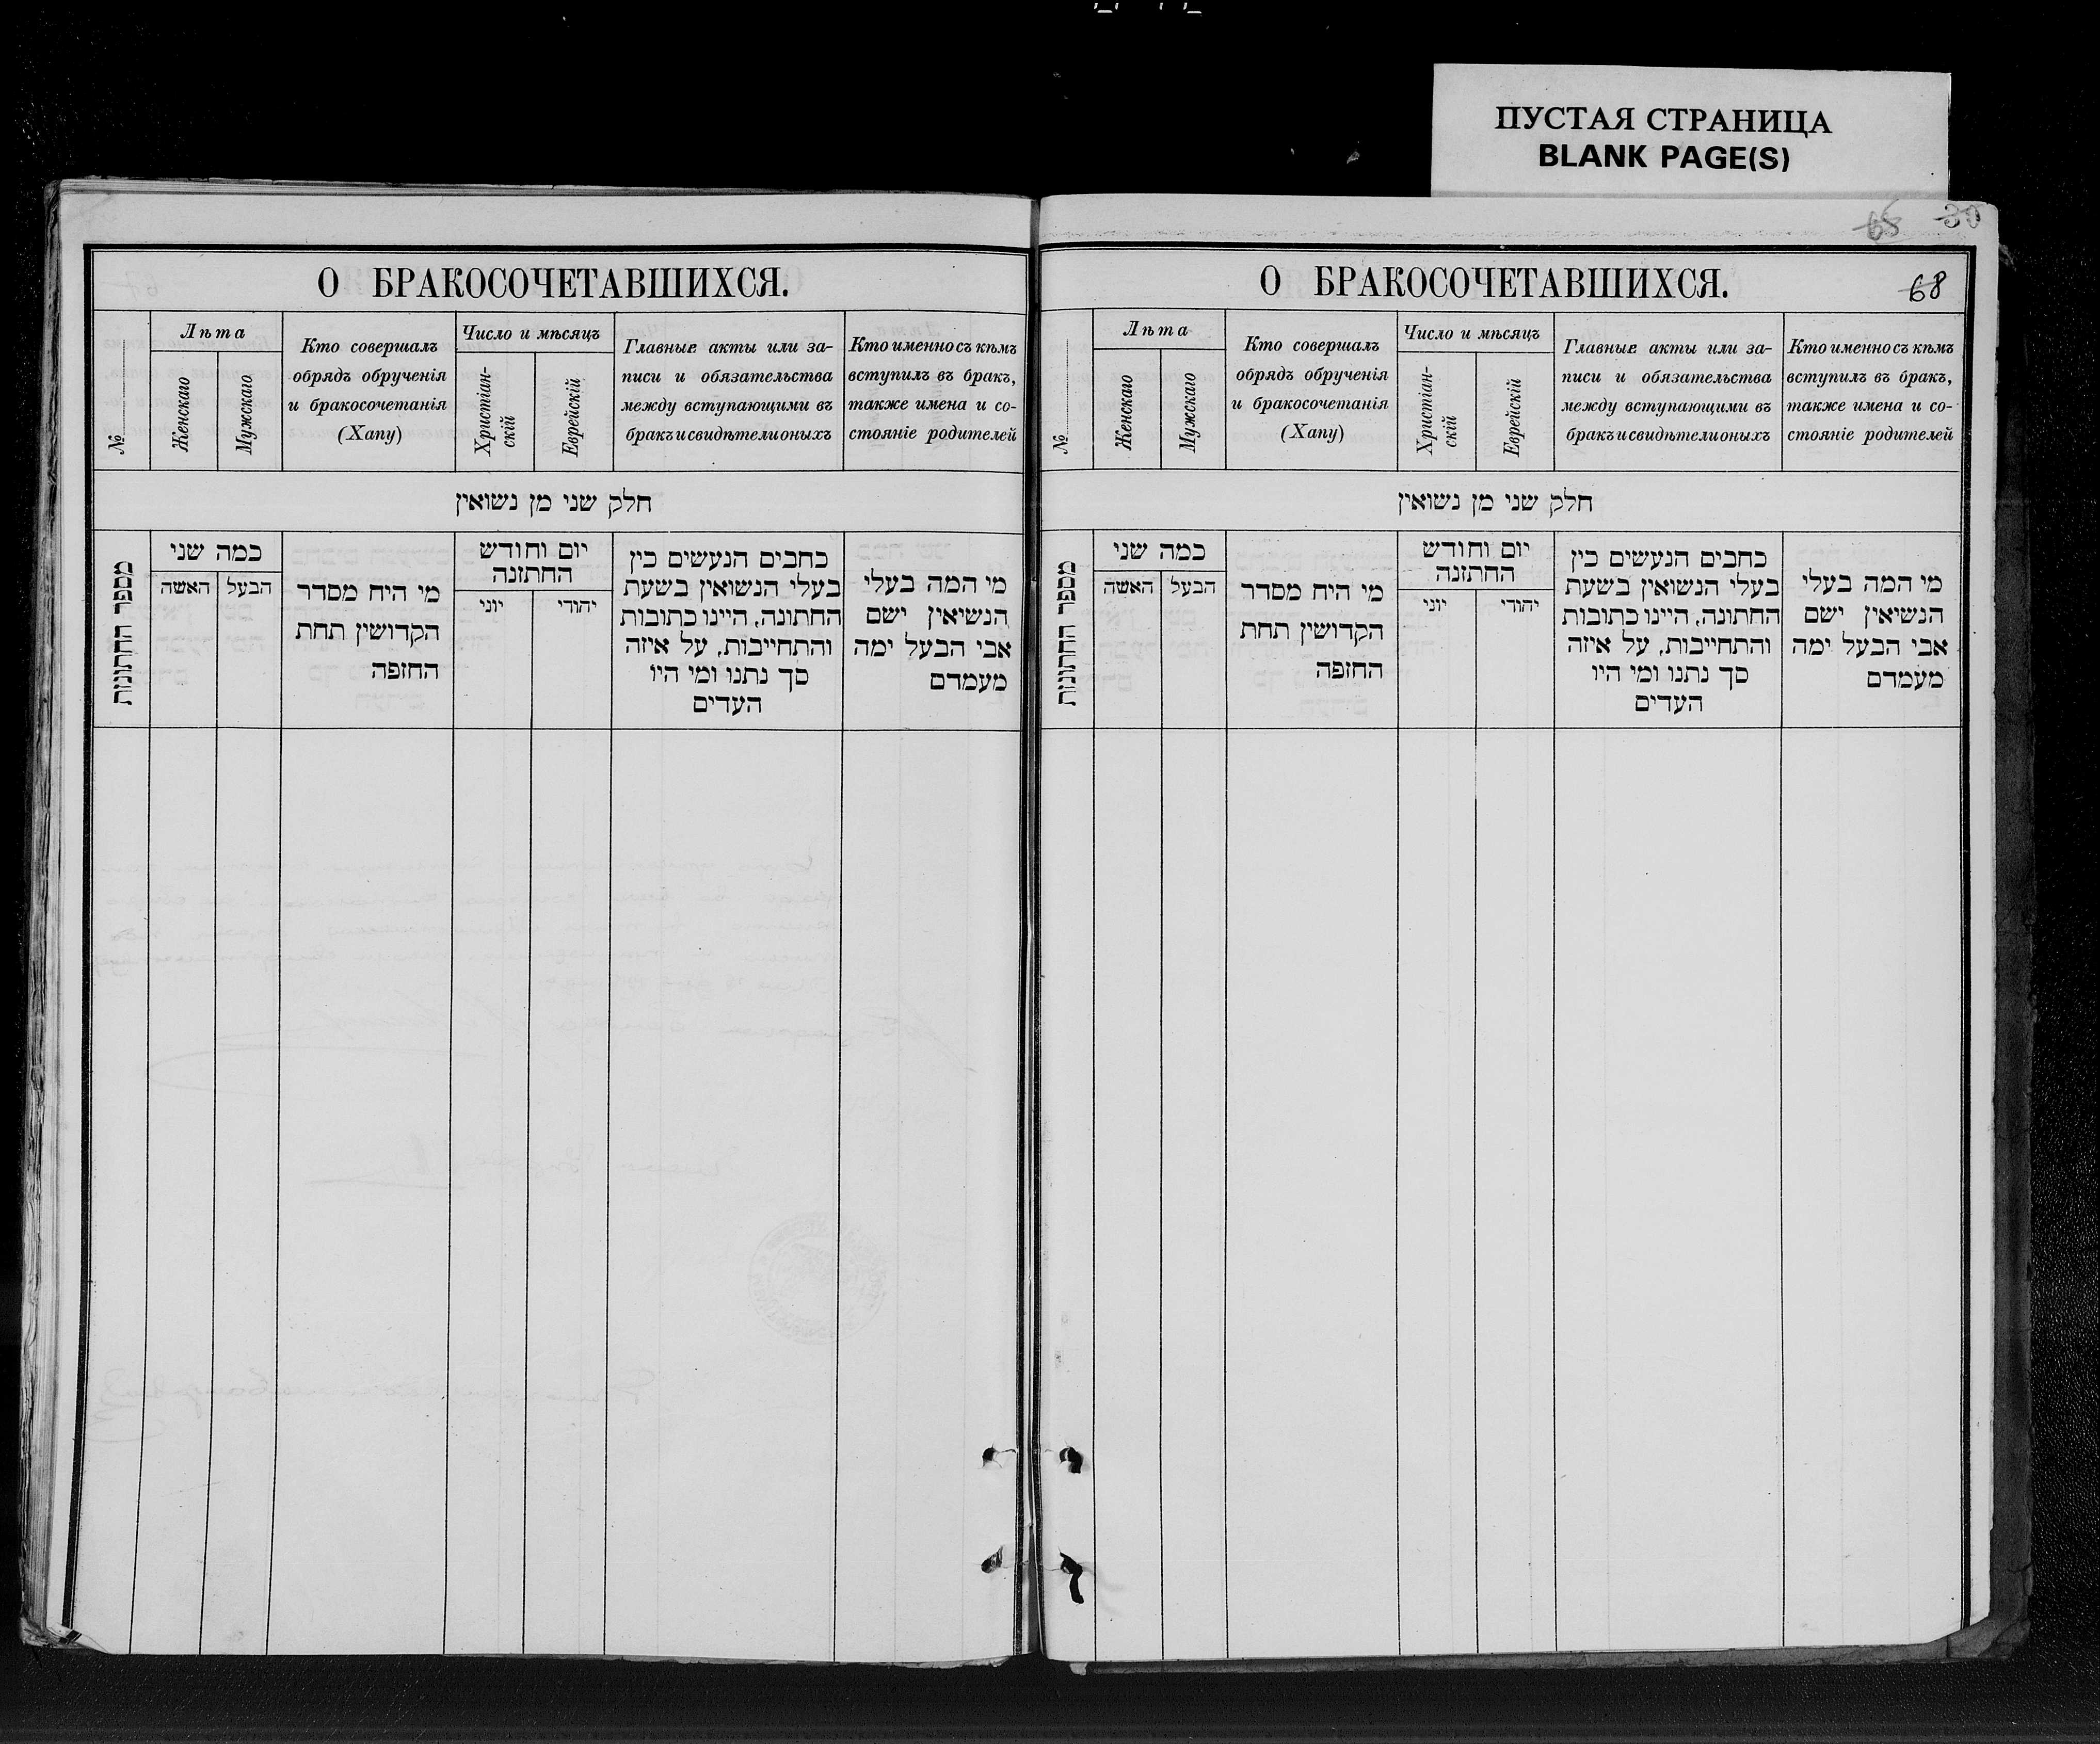 ПУСТАЯ СТРАНИЦА
BLANK PAGE(S)
О БРАКОСОЧЕТАВШИХСЯ.
№
Лѣта
Женскаго
Мужскаго
Кто совершалъ
обрядъ обрученія
и бракосочетанія
(Хапу)
Число и мѣсяцъ
Христіан-
скій
Еврейскій
Главные акты или за-
писи и обязательства
между вступающими въ
бракъ и свидѣтели оныхъ
Кто именно съ кѣмъ
вступилъ въ бракъ,
также имена и со-
стояніе родителей
חלק שני מן נשואין
מספר החתונות
כמה שני
הבעל
האשה
מי היח מסדר
הקדושין תחת
החזפה
יום וחודש
החתזנה
יהודי
יוני
כחבים הנעשים כין
בעלי הנשואין בשעת
החתונה, היינו כתובות
והתחייבות, על איזה
סך נתנו ומי היו
העדים
מי המה בעלי
הנשיאין ישם
אבי הבעל ימה
מעמדם
68
30
О БРАКОСОЧЕТАВШИХСЯ.
68
№
Лѣта
Женскаго
Мужскаго
Кто совершалъ
обрядъ обрученія
и бракосочетанія
(Хапу)
Число и мѣсяцъ
Христіан-
скій
Еврейскій
Главные акты или за-
писи и обязательства
между вступающими въ
бракъ и свидѣтели оныхъ
Кто именно съ кѣмъ
вступилъ въ бракъ,
также имена и со-
стояніе родителей
חלק שני מן נשואין
מספר החתונות
כמה שני
הבעל
האשה
מי היח מסדר
הקדושין תחת
החזפה
יום וחודש
החתזנה
יהודי
יוני
כחבים הנעשים כין
בעלי הנשואין בשעת
החתונה, היינו כתובות
והתחייבות, על איזה
סך נתנו ומי היו
העדים
מי המה בעלי
הנשיאין ישם
אבי הבעל ימה
מעמדם